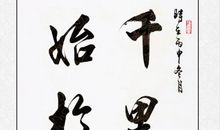 時在丙申冬月
千里
始於